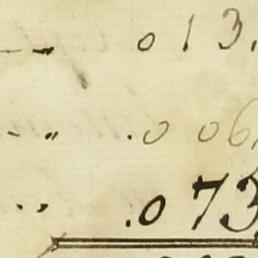 " 013.
" .006
" .073